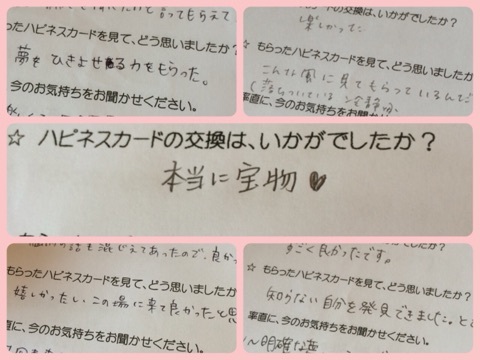 言ってもらえて
らったハピネスカードを見て、どう思いましたか
夢をひきよせる力をもらった。
今のお気持ちをお聞かせください。
ドの交換は、いかがでしたか?
楽しかった
☆ もらったハピネスカードを見て、どう思いましたか?
こんな風に見てもらっているんだ
(落ちついている 冷静
率直に、今のお気持ちをお聞かせください。
☆ ハピネスカードの交換は、いかがでしたか?
本当に宝物♥
話も混じえてあったので、良かっ
もらったハピネスカードを見て、どう思いましたか?
嬉しかったし、この場に来て良かったと思
直に、今のお気持ちをお聞かせください。
すごく良かったです。
☆ もらったハピネスカードを見て、どう思いましたか?
知らない自分を発見できました。と
率直に、今のお気持ちをお聞かせください。
明確な